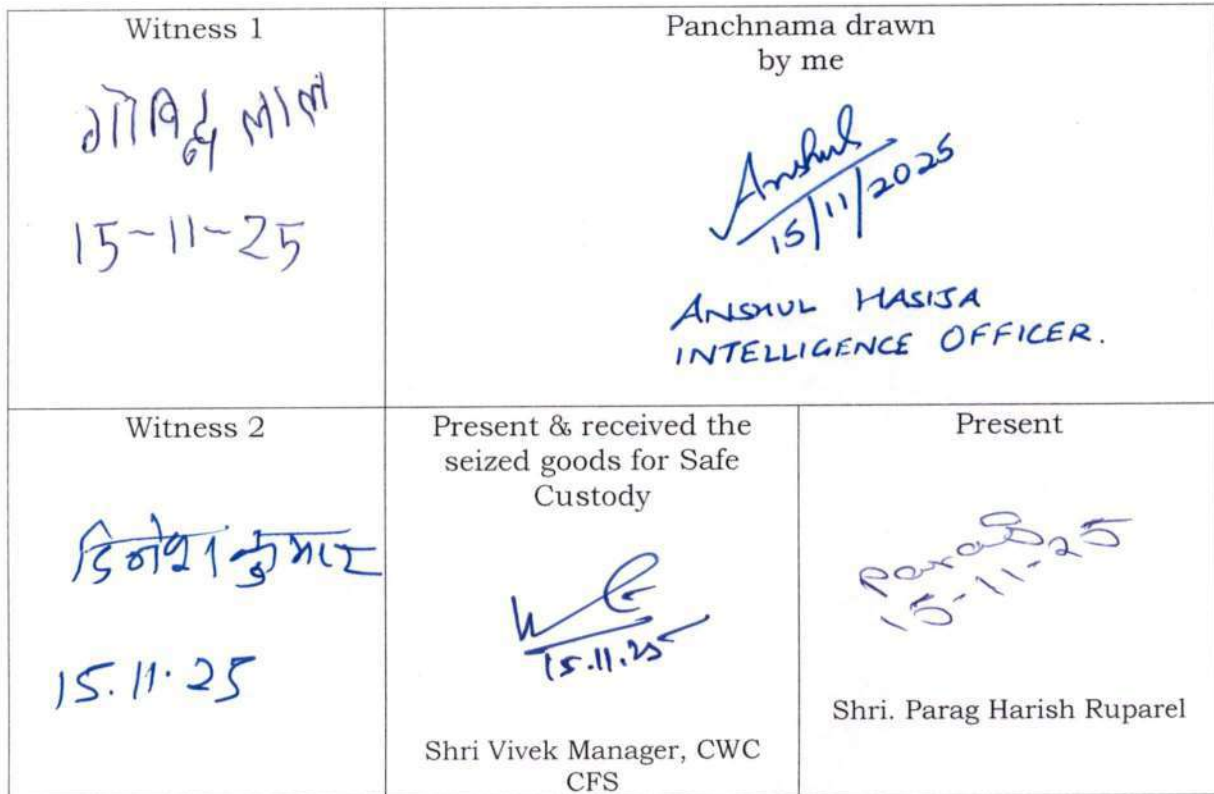 Witness 1
गोविन्द लाल
15-11-25
Panchnama drawn
by me
Anshul
15/11/2025
ANSHUL HASIJA
INTELLIGENCE OFFICER.
Witness 2
दिनेश कुमार
15.11.25
Present & received the
seized goods for Safe
Custody
15.11.25
Shri Vivek Manager, CWC
CFS
Present
Parag
15-11-25
Shri. Parag Harish Ruparel